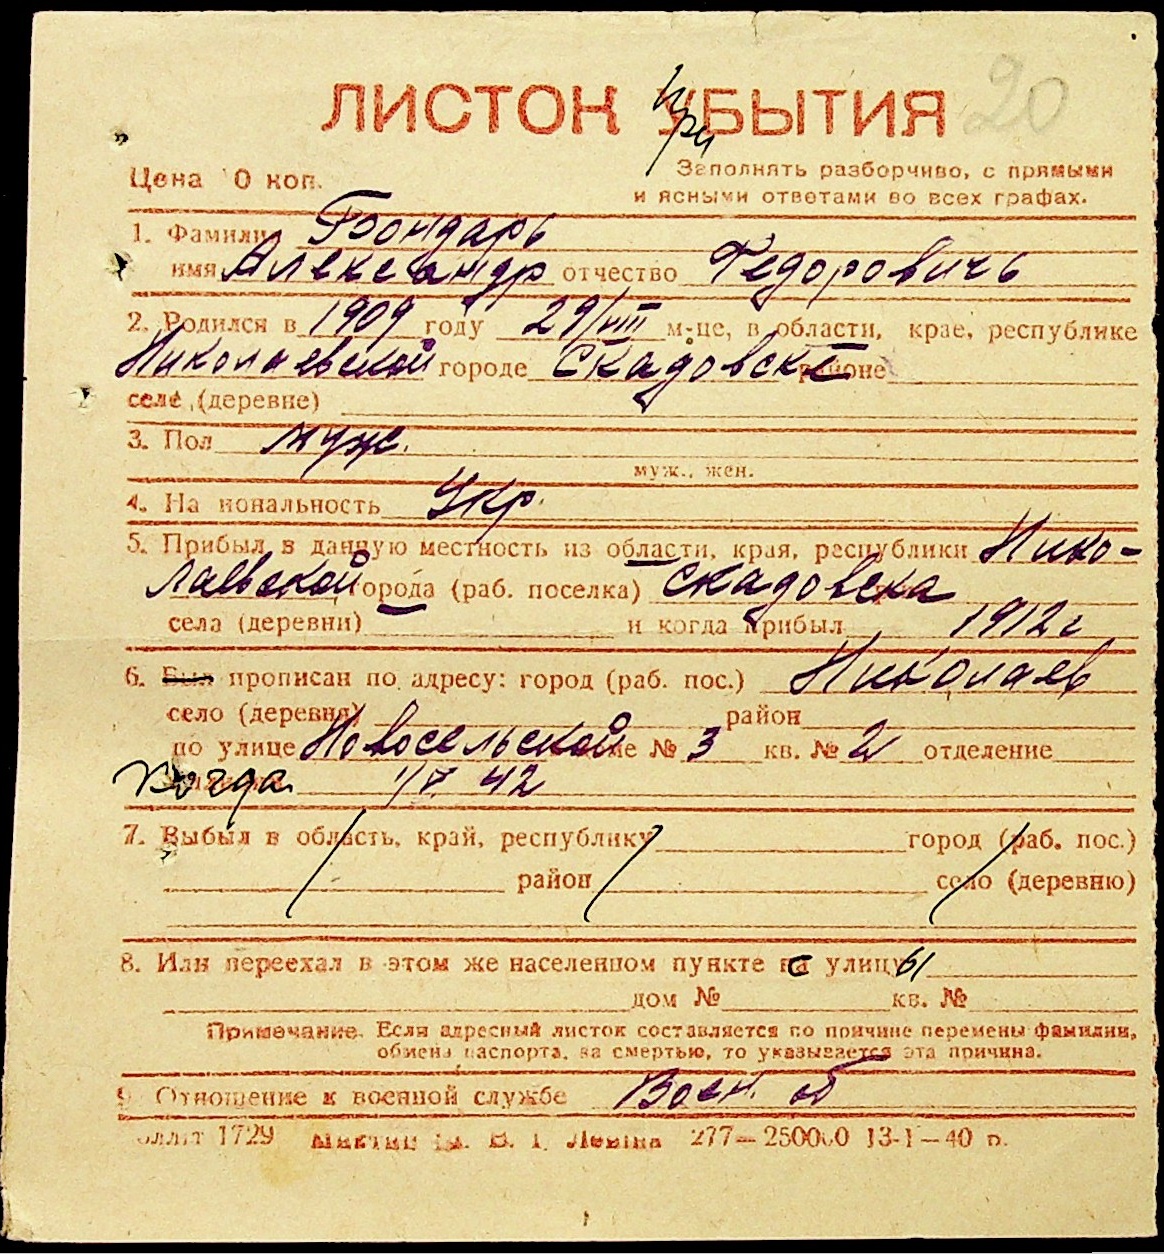 20
ЛИСТОК УБЫТИЯ
При
Заполнять разборчиво, с прямыми
Цена 10 коп.
и ясными ответами во всех графах.
1. Фамилия Бондарь
имя Александр отчество Федоровичь
2. Родился в 1909 году 29/VIII м-це, в области, крае, республике
Николаевской городе Скадовске районе
селе (деревне)
3. Пол муж.
муж., жен.
4. Национальность Укр.
5. Прибыл в данную местность из области, края, республики Нико-
лаевской города (раб. поселка) Скадовска
села (деревни) и когда прибыл 1912 г
6. Был прописан по адресу: город (раб. пос.) Николаев
село (деревня) район
по улице Новосельской доме № 3 кв. № 2 отделение
Когда 1/V 42
7. Выбыл в область, край, республику город (раб. пос.)
район село (деревню)
8. Или переехал в этом же населенном пункте с улицы
дом № кв. №
Примечание. Если адресный листок составляется по причине перемены фамилии,
обмена паспорта, за смертью, то указывается эта причина.
9. Отношение к военной службе Воен. об
1729 В. І. Леніна 277—250000 13-1—40 р.